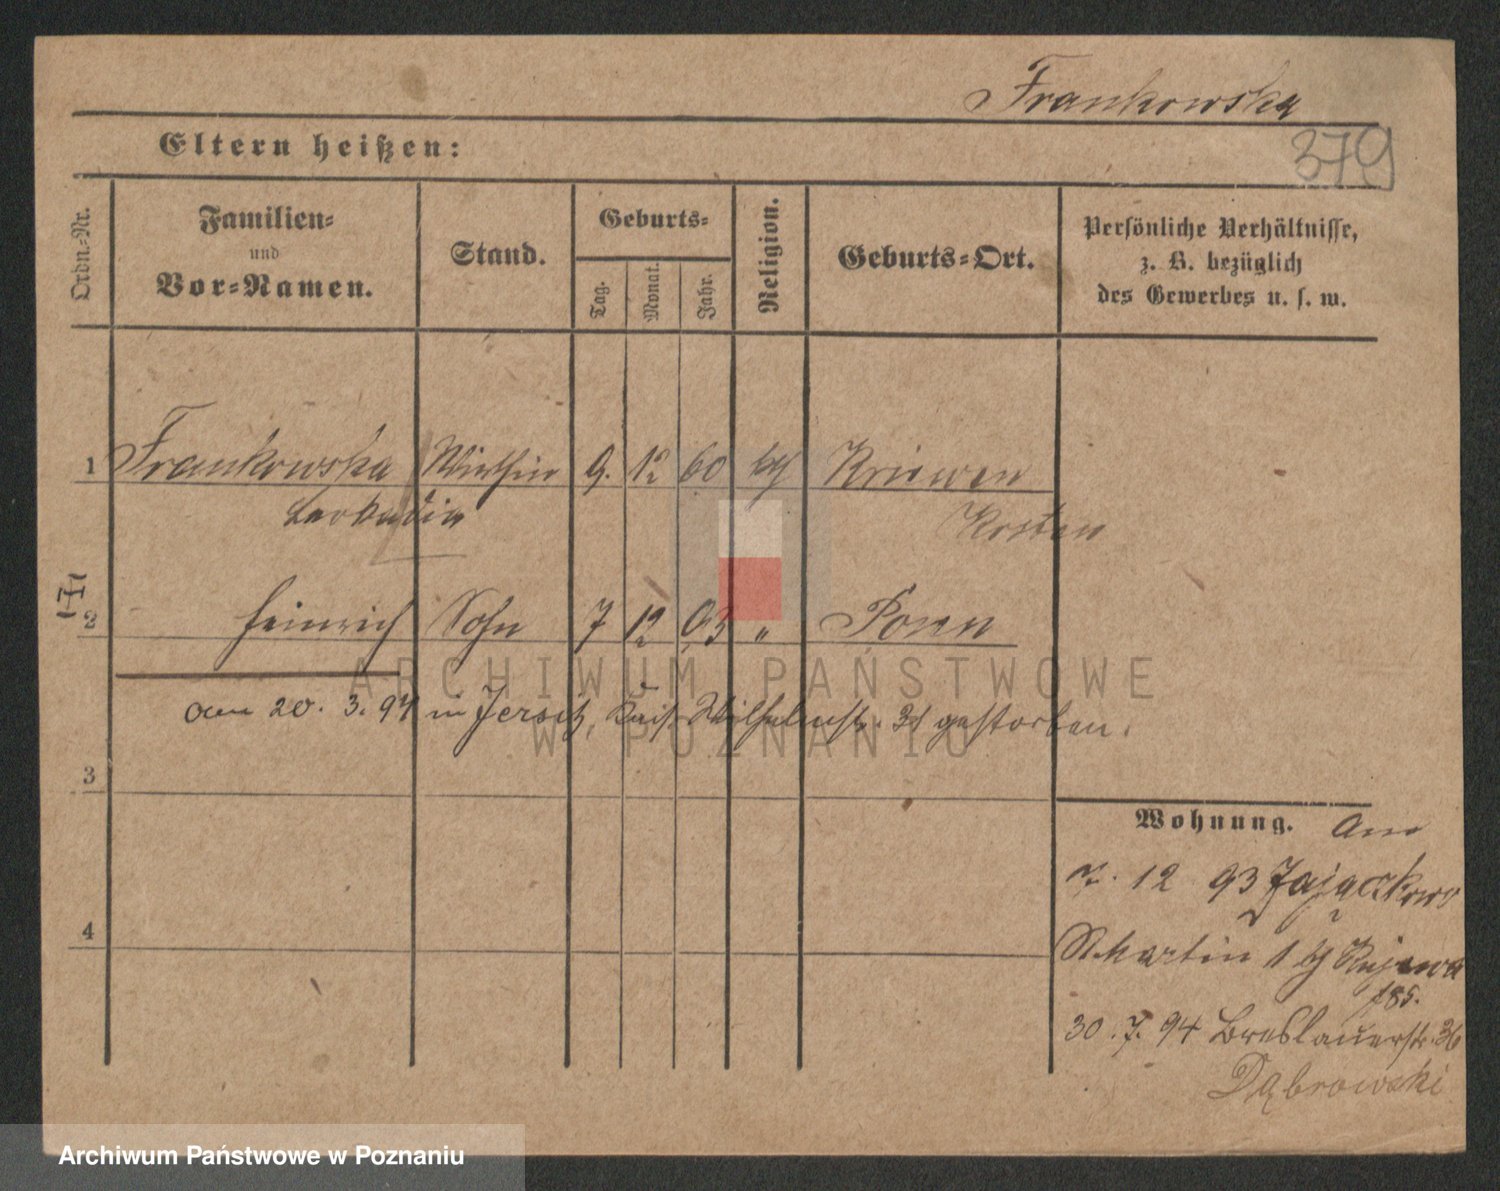 Frankowska
379
Eltern heißen:
Ordn.-Nr.
Familien-
und
Vor-Namen.
Stand.
Geburts-
Tag.
Monat.
Jahr.
Religion.
Geburts-Ort.
Persönliche Verhältnisse,
z. B. bezüglich
des Gewerbes u. s. w.
1 Frankowska Wirthin 9. 12 60 kth Kriewen
Leokadia Kosten
2 Heinrich Sohn 7 12 93 " Posen
am 20. 3. 94 in Jersitz, Kais. Wilhelmstr. 31 gestorben.
3
Wohnung. Am
7. 12 93 Zajączkowo
4
St. Martin 1 b/
30. 7. 94 Breslauerstr. 36
Dąbrowski
ARCHIWUM PAŃSTWOWE
W POZNANIU
Archiwum Państwowe w Poznaniu